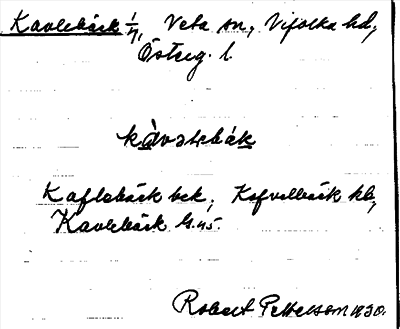 Kavlebäck 1/4, Veta sn, Vifolka hd,
Österg. l.
Kaflebäck bek, Kafvelbäck kb,
Kavlebäck
Robert Pettersson 1930.